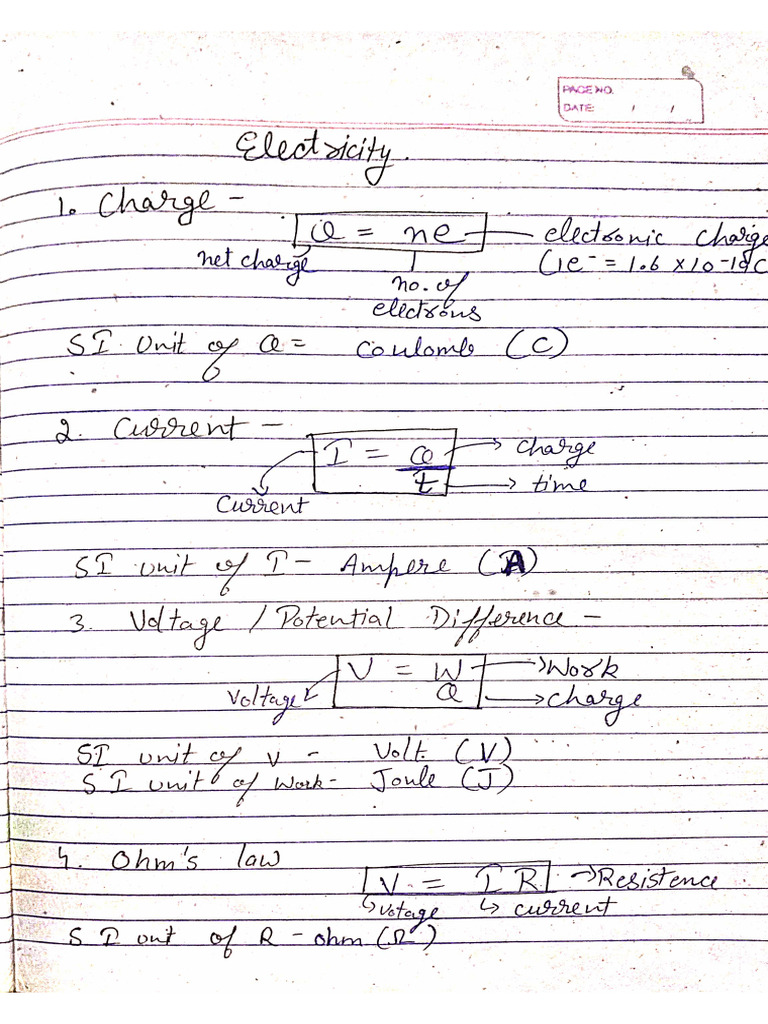 PAGE NO.
DATE: / /
Electricity.
1. Charge -
Q = ne electronic charge
net charge (1e⁻ = 1.6 x 10⁻¹⁹C
no. of
electrons
SI Unit of Q = Coulomb (C)
2. Current -
I = Q charge
t time
Current
SI unit of I - Ampere (A)
3. Voltage / Potential Difference -
V = W Work
Voltage Q charge
SI unit of V - Volt. (V)
SI unit of Work - Joule (J)
4. Ohm's law
V = IR Resistence
Votage current
SI unit of R - ohm (Ω)